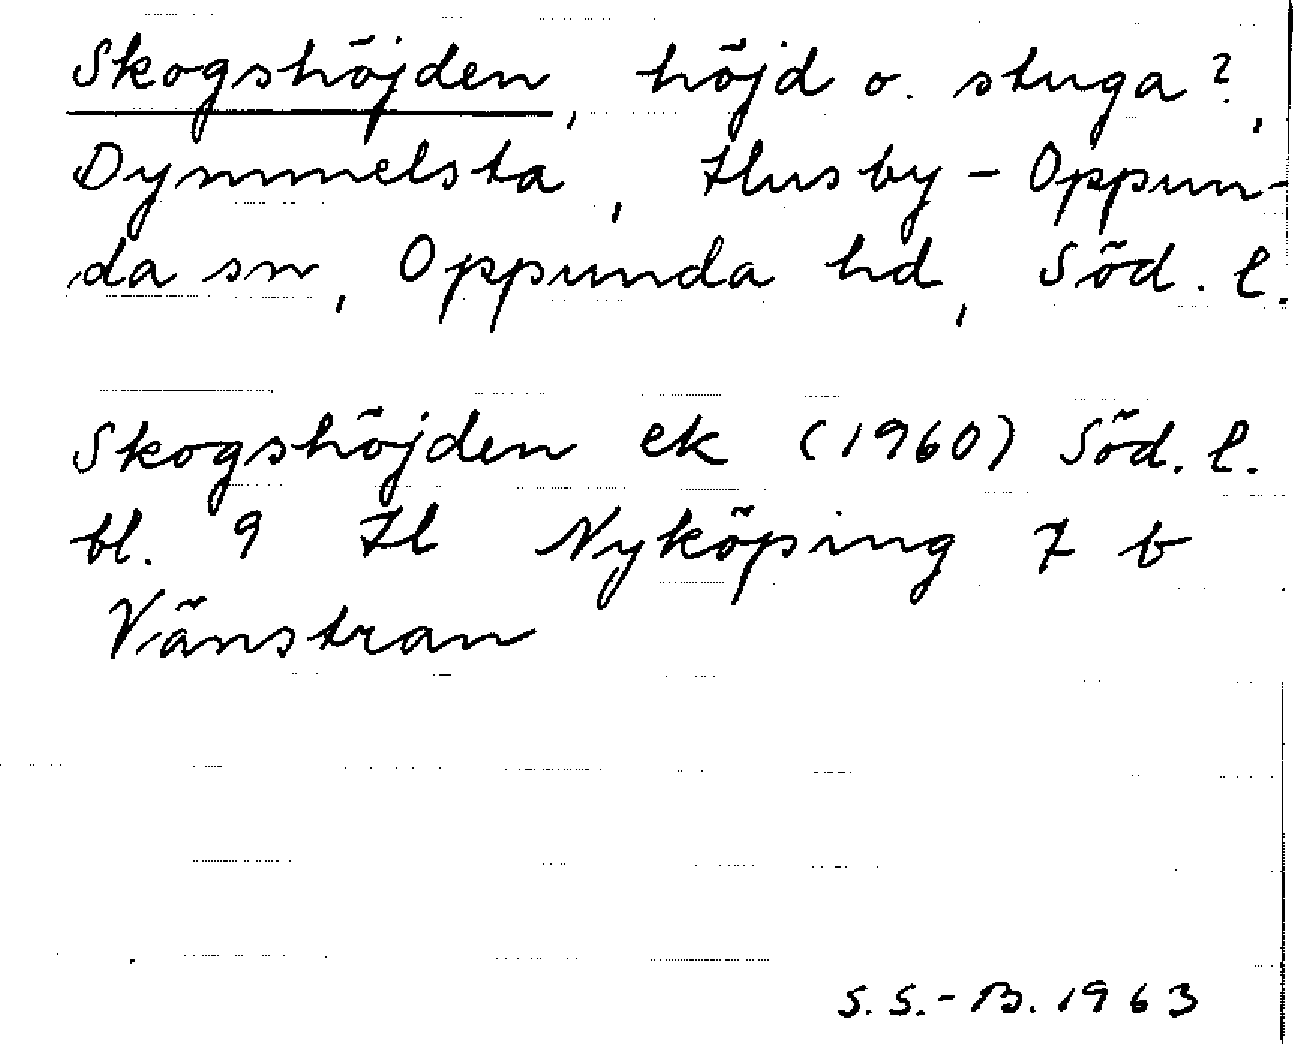 Skogshöjden, höjd o. stuga?,
Dymmelsta, Husby-Oppun-
da sn, Oppunda hd, Söd. l.
Skogshöjden ek (1960) Söd. l.
bl. 9 H Nyköping 7 b
Vänstran
S.S.-B. 1963